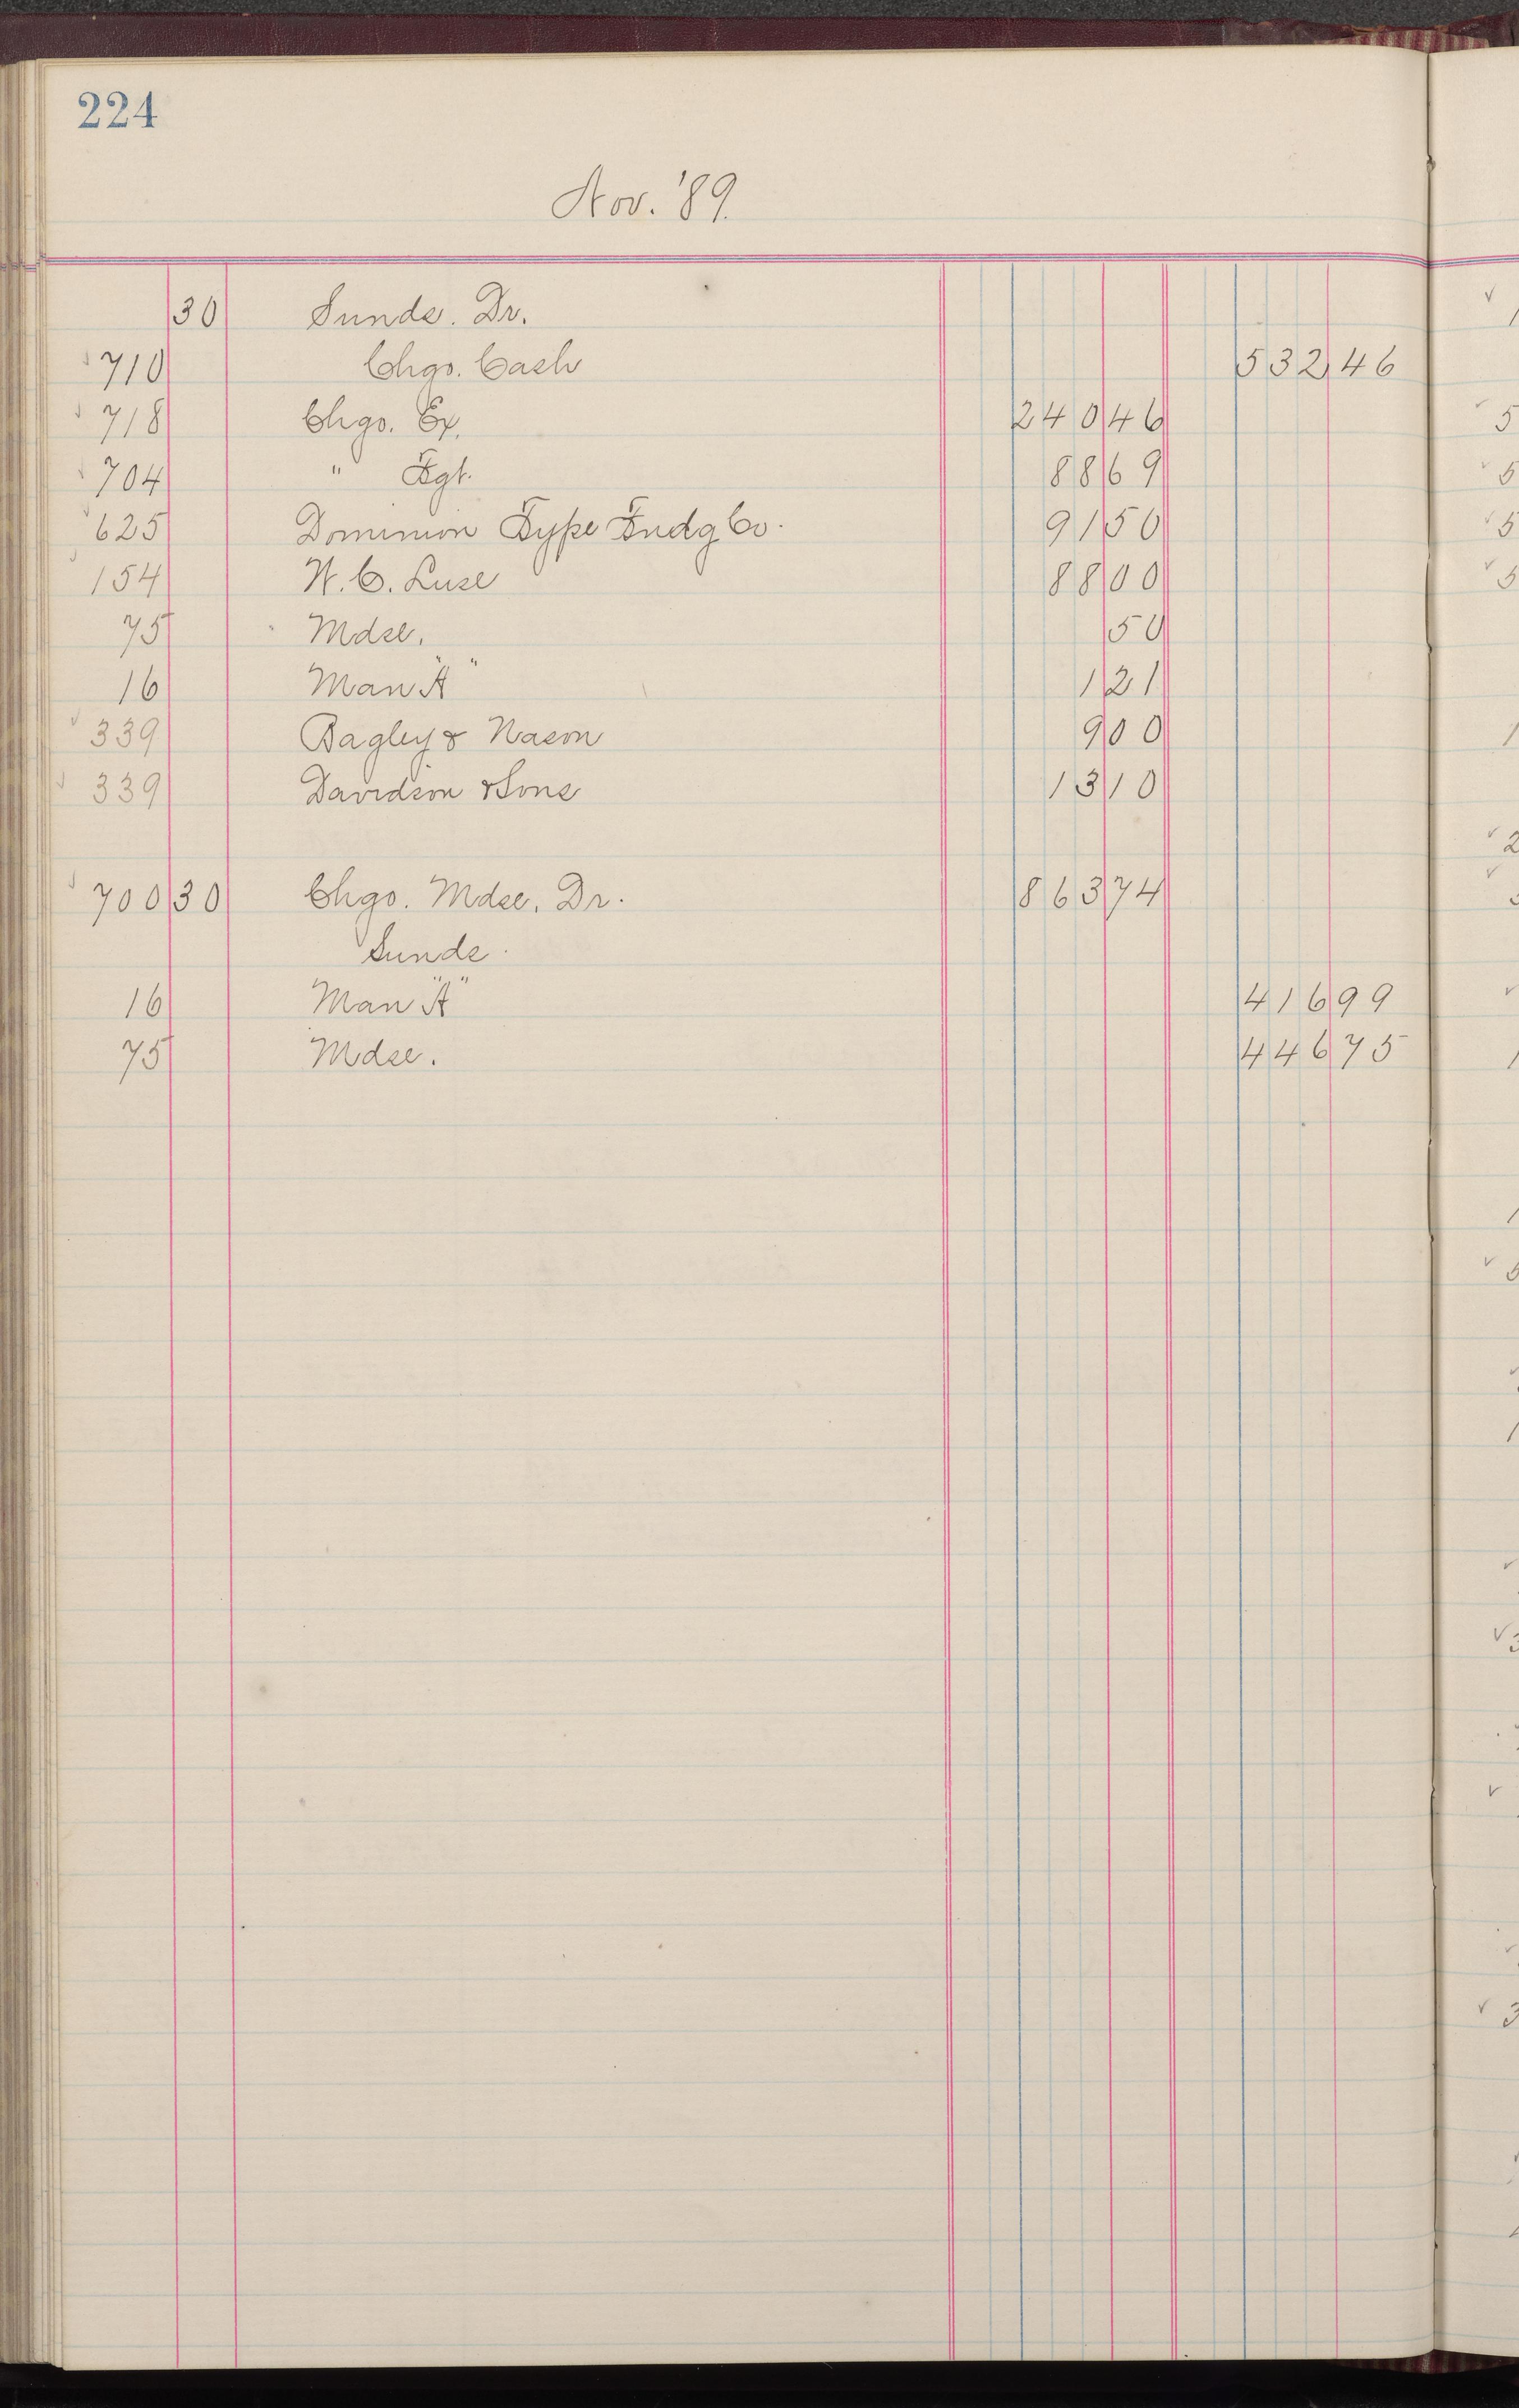 224
Nov. '89.
30 Sunds. Dr.
710 Chgo. Cash 532 46
718 Chgo. Ex. 240 46
704 " Fgt. 88 69
625 Dominion Type Fndg Co. 91 50
154 W. C. Luse 88 00
75 Mdse. 50
16 Man "A" 1 21
339 Bagley & Nason 9 00
339 Davidson & Sons 13 10
700 30 Chgo. Mdse. Dr. 863 74
Sunds.
16 Man "A" 416 99
75 Mdse. 446 75